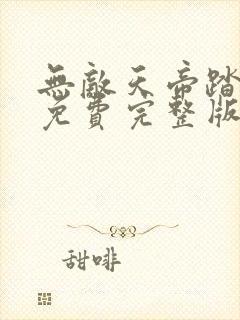 無敵天帝踏
免費完整版
甜啡